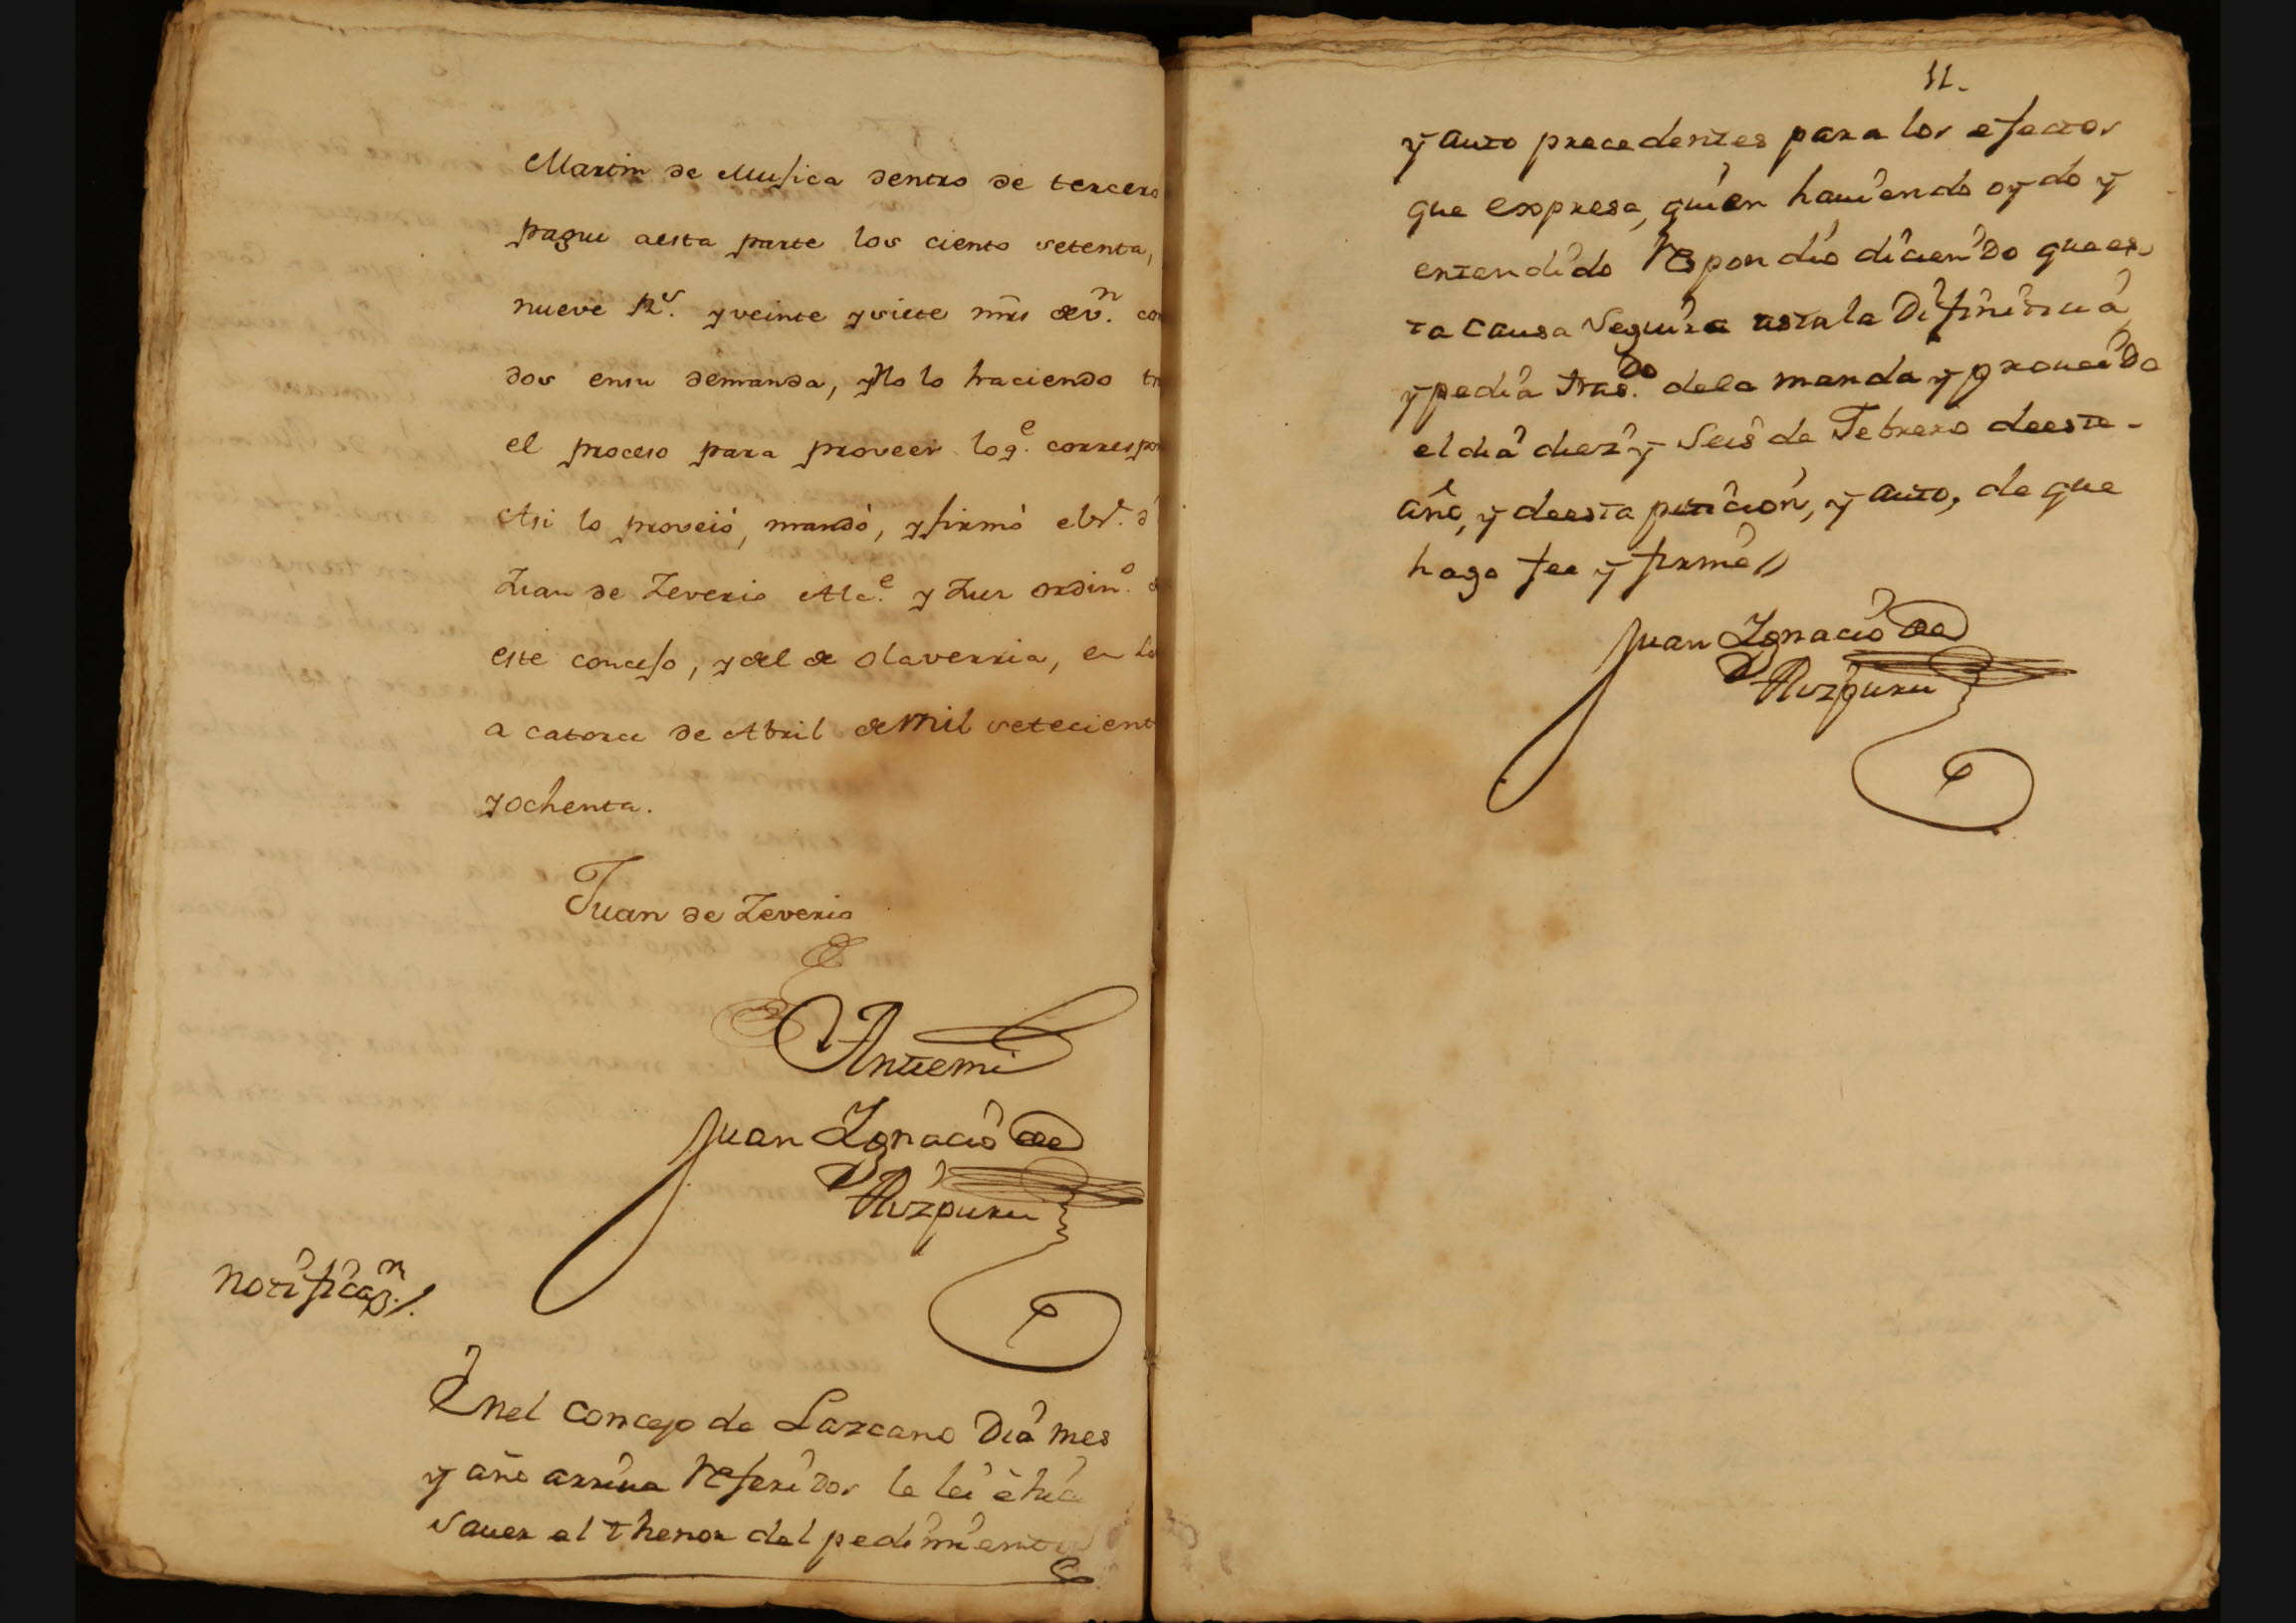 Martin de Musica dentro de tercero
pague aesta parte los ciento setenta,
nueve Rˢ. y veinte y siete mr̄s de vⁿ. con
dos ensu demanda, y No lo haciendo
el proceso para proveer lo qᵉ. correspon
Asi lo proveió, mandó, y firmó el Sʳ. d
Juan de Zeverio Alcᵉ. y Juez ordinᵒ. d
este concejo, y del de Olaverria, en La
a catorce de Abril de mil setecient
y ochenta.
Juan de Zeverio
Antemi
Juan Ignacio de
Aizpuru
Notificaⁿ.
Enel concejo de Lazcano Dia mes
y año arriva referidos le leí è hic
saver el thenor del pedimiento
11.
y auto precedentes para los efectos
que expresa, quien haviendo oydo y
entendido respondio diciendo que es-
ta causa seguira asta la Difinitiva
y pedia trasᵈᵒ. dela manda y proveido
el dia diez y seis de Febrero deeste-
año, y deesta peticion, y auto, de que
hago fee y firmé //
Juan Ignacio de
Aizpuru